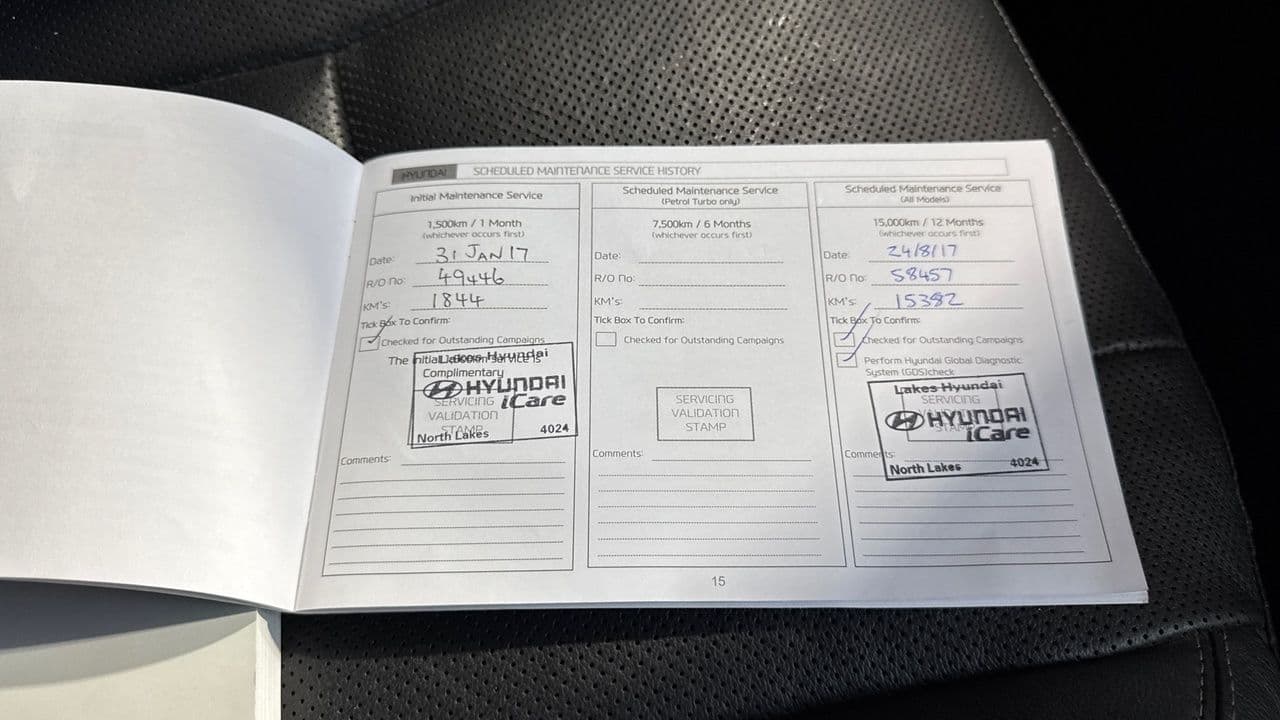 HYUNDAI SCHEDULED MAINTENANCE SERVICE HISTORY
Initial Maintenance Service
1,500km / 1 Month
(whichever occurs first)
Date: 31 JAN 17
R/O No: 49446
KM's: 1844
Tick Box To Confirm:
Checked for Outstanding Campaigns
The Initial
Lakes Hyundai
Complimentary
HYUNDAI
SERVICING iCare
VALIDATION
STAMP
North Lakes 4024
Comments:
Scheduled Maintenance Service
(Petrol Turbo only)
7,500km / 6 Months
(whichever occurs first)
Date:
R/O No:
KM's:
Tick Box To Confirm:
Checked for Outstanding Campaigns
SERVICING
VALIDATION
STAMP
Comments:
Scheduled Maintenance Service
(All Models)
15,000km / 12 Months
(whichever occurs first)
Date: 24/8/17
R/O No: 58457
KM's: 15382
Tick Box To Confirm:
Checked for Outstanding Campaigns
Perform Hyundai Global Diagnostic
System (GDS)check
Lakes Hyundai
SERVICING
HYUNDAI
iCare
North Lakes 4024
Comments:
15